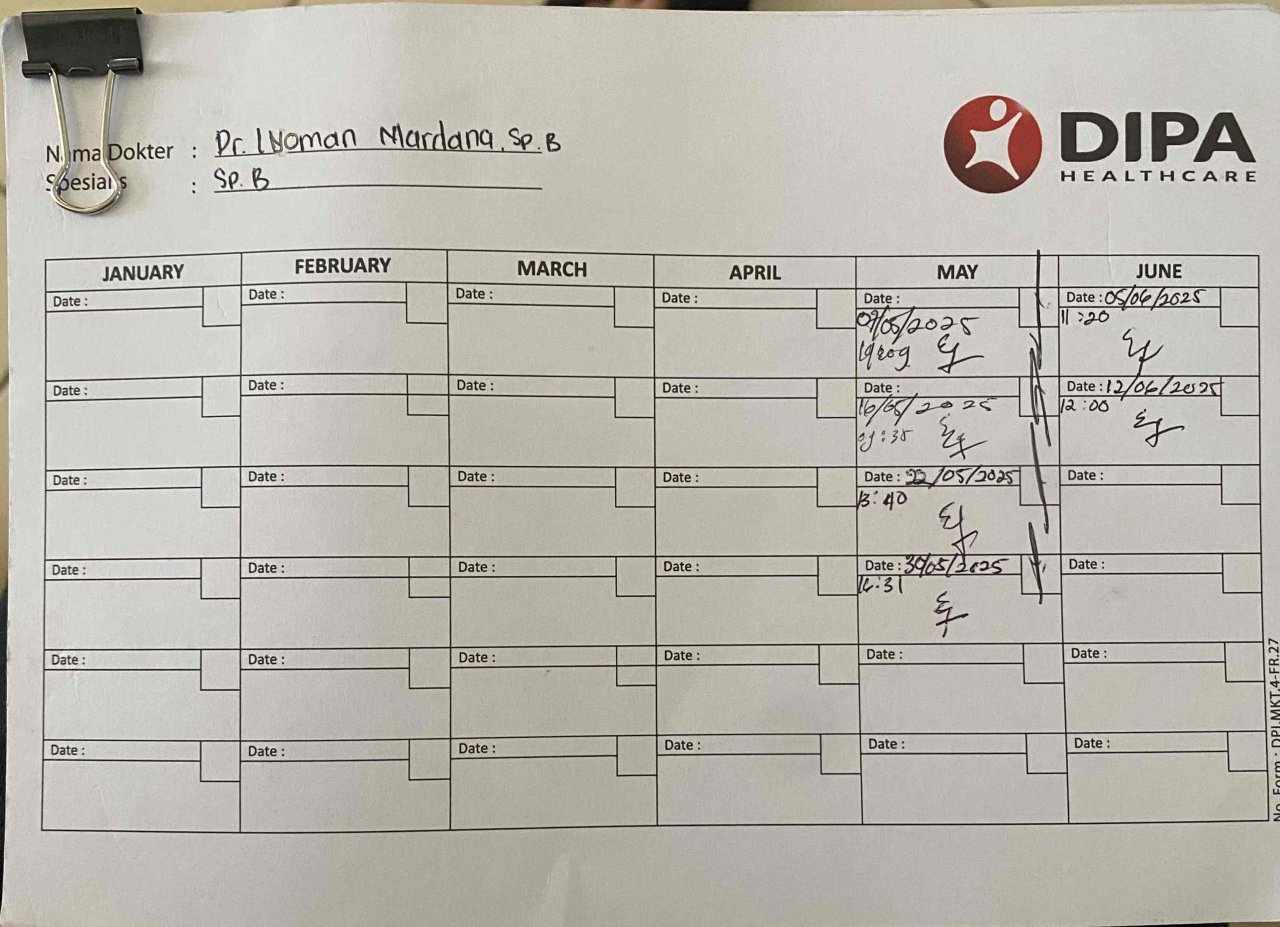 Nama Dokter : Dr. I Nyoman Mardana, Sp.B
Spesialis : Sp. B
DIPA
HEALTHCARE
JANUARY FEBRUARY MARCH APRIL MAY JUNE
Date : Date : Date : Date : Date : Date : 05/06/2025
09/05/2025 11:20
Date : Date : Date : Date : Date : Date : 12/06/2025
16/05/2025 12:00
09:35
Date : Date : Date : Date : Date : 22/05/2025 Date :
13:40
Date : Date : Date : Date : Date : 30/05/2025 Date :
14:31
Date : Date : Date : Date : Date : Date :
Date : Date : Date : Date : Date : Date :
No. Form : DPI.MKT.4-FR.27